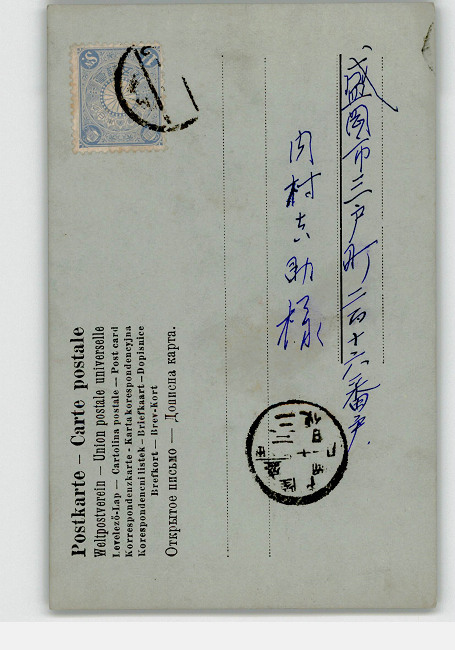 盛岡市三戸町二百十六番戸
内村吉助様
Postkarte – Carte postale
Weltpostverein – Union postale universelle
Levelező-Lap – Cartolina postale – Post card
Korrespondenzkarte - Karta korespondencyjna
Korespondencnilistek – Briefkaart – Dopisnice
Brefkort – Brev-Kort
Открытое письмо – Дописна карта.